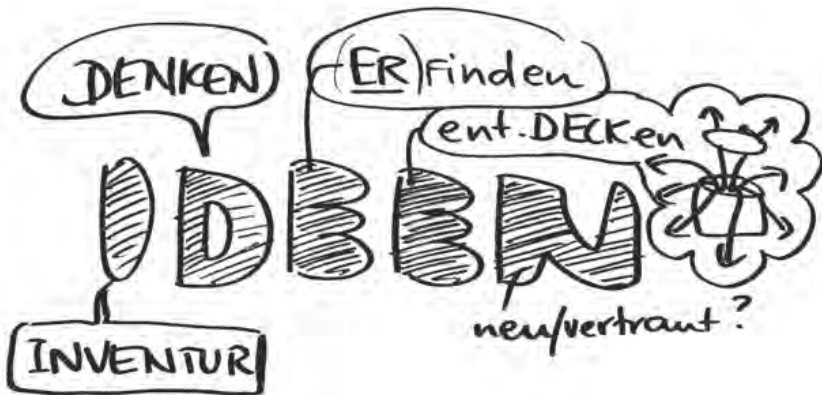 DENKEN
(ER)Finden
ent.DECKen
IDEEN
neu/vertraut?
INVENTUR